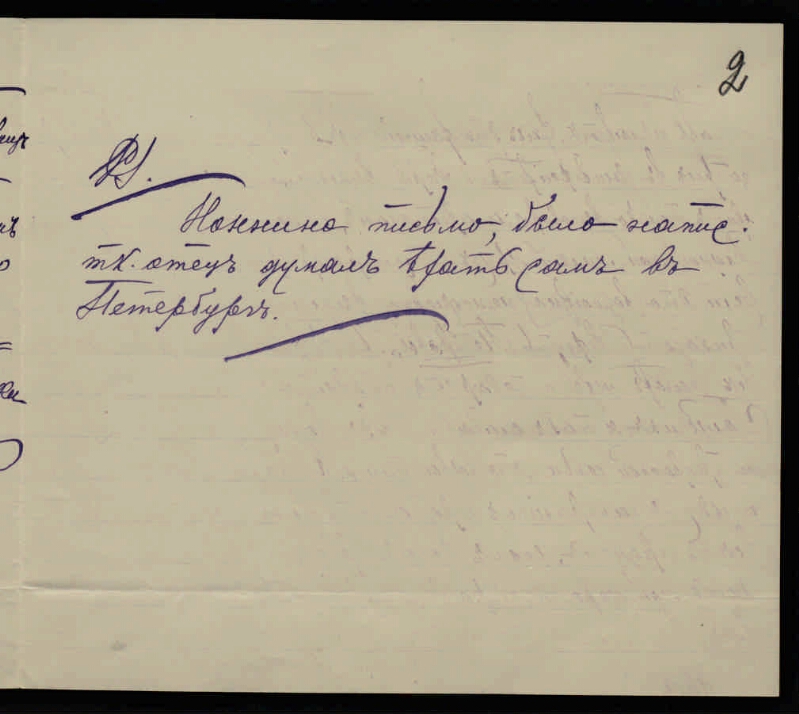 2
PS.
Ноннино письмо, было напис.
т.к. отецъ думалъ ѣхать самъ въ
Петербургъ.